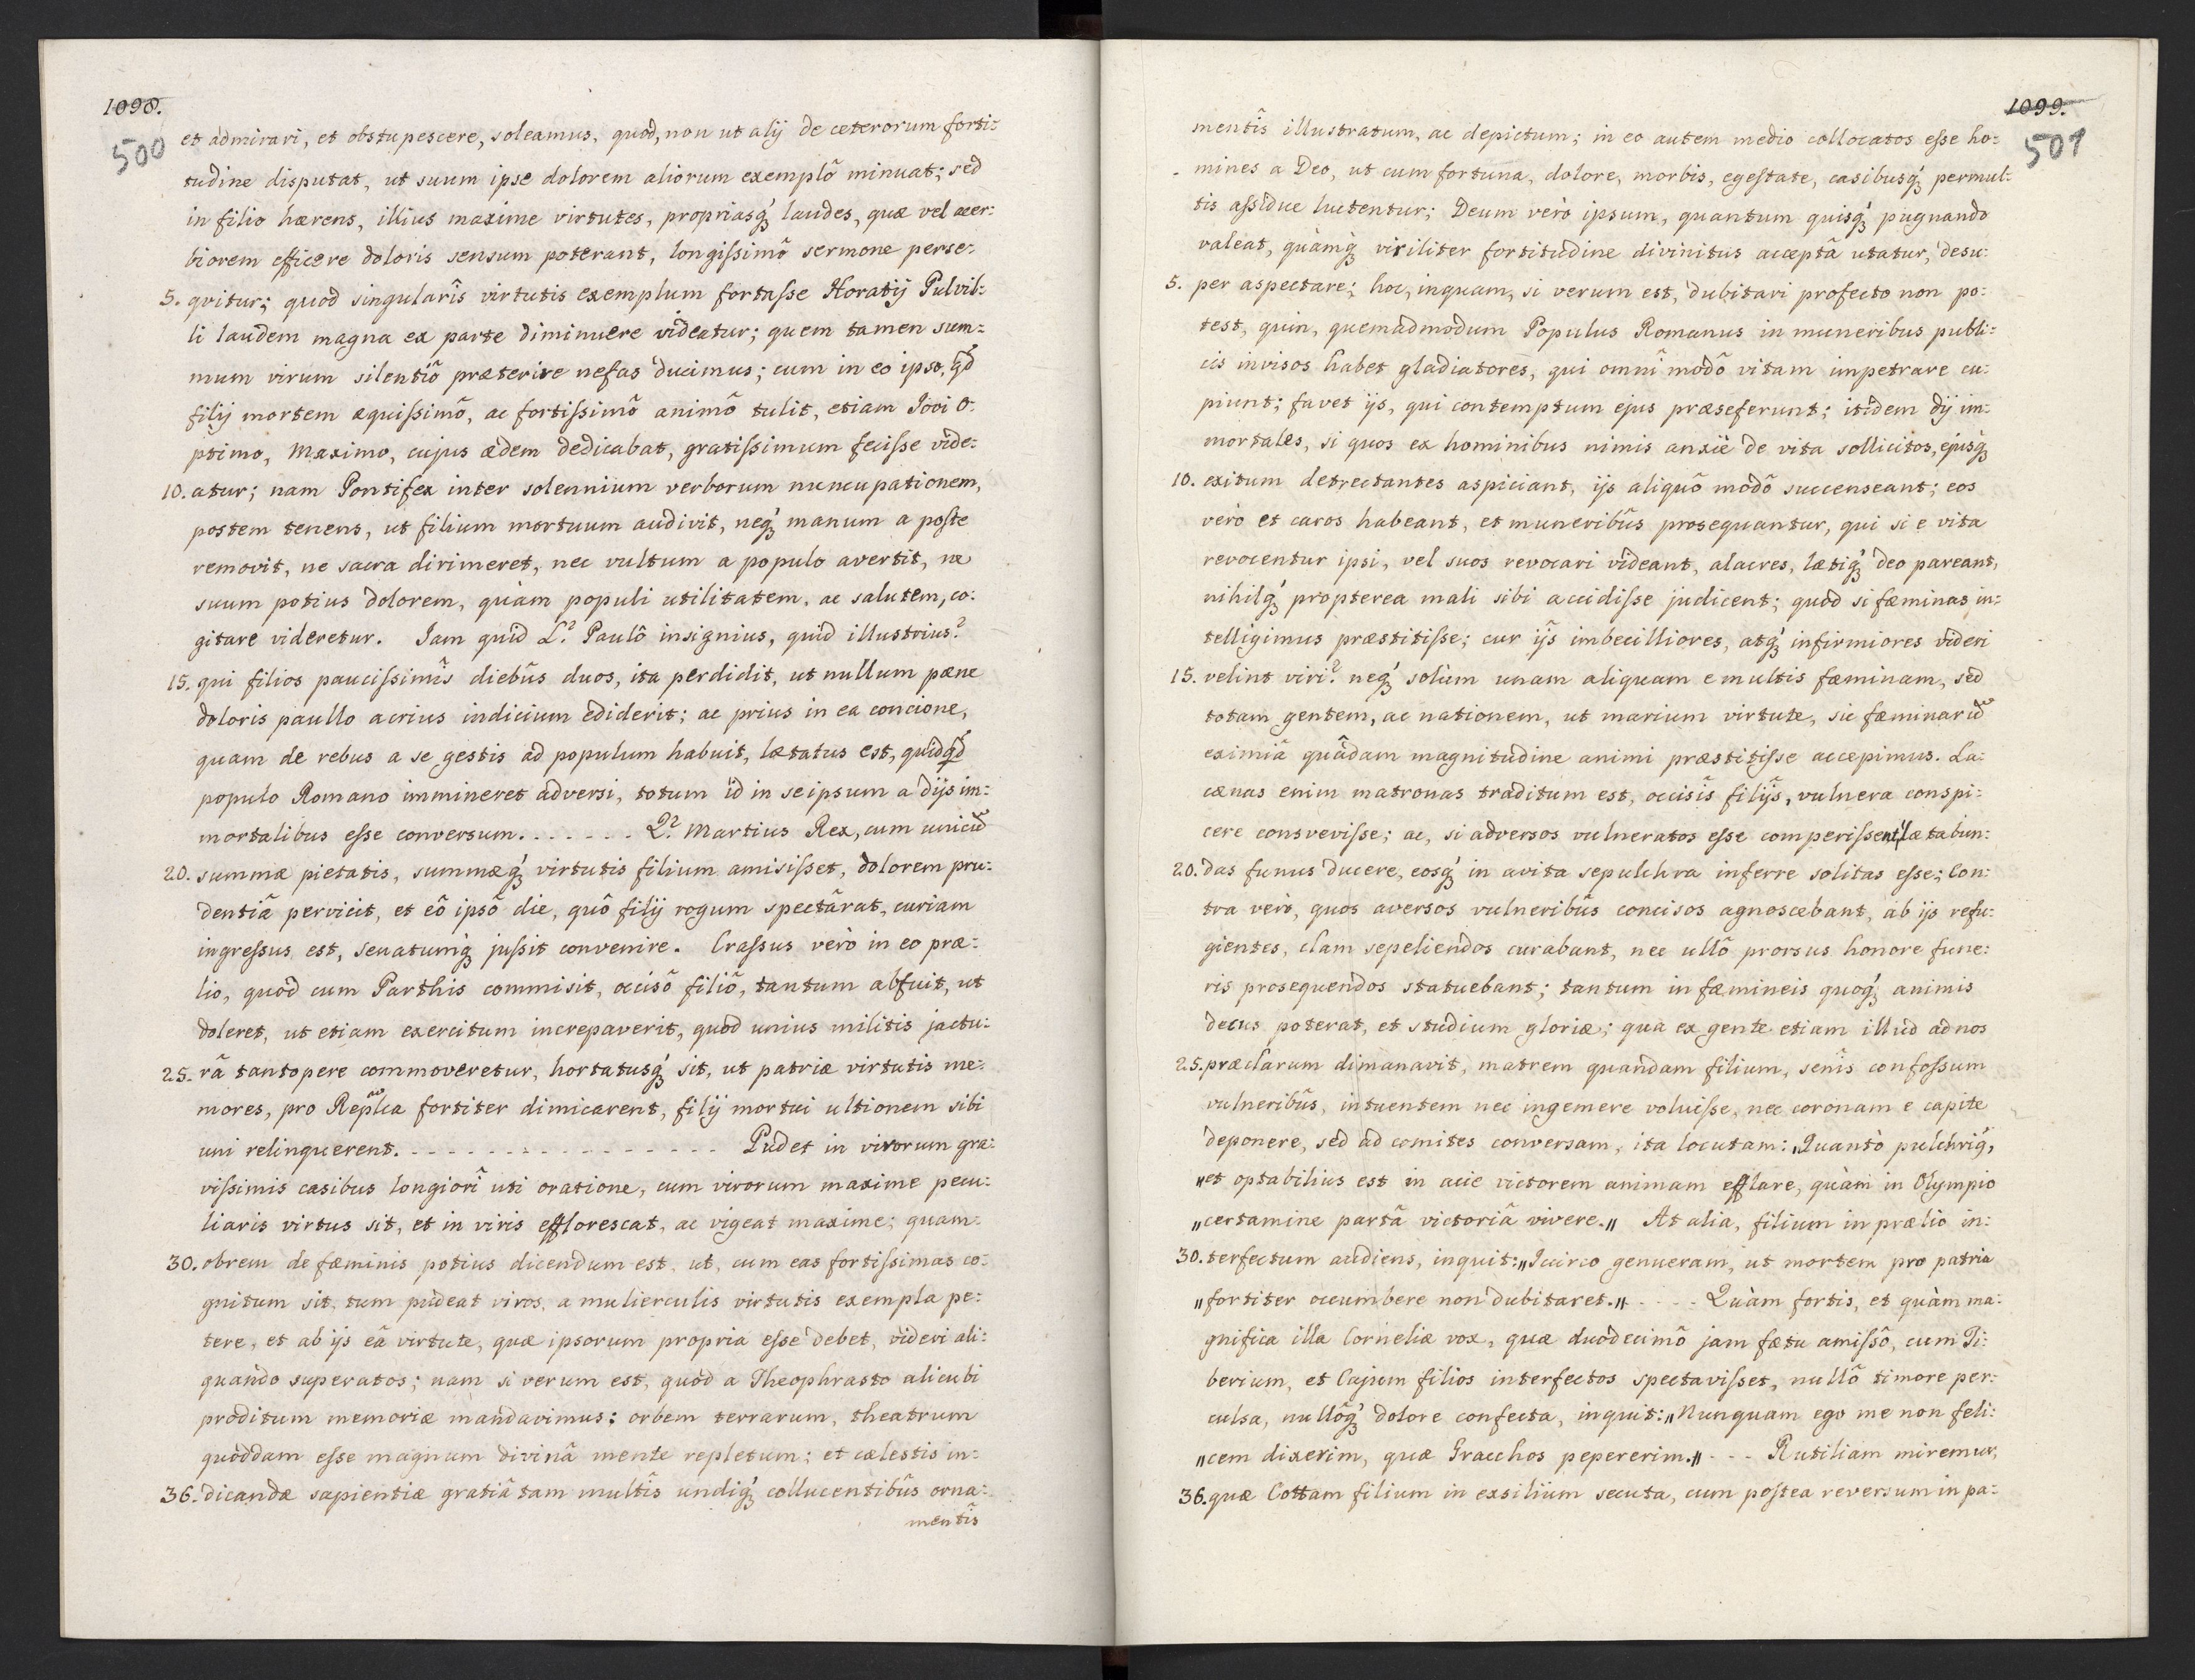 1098.
500
et admirari, et obstupescere, soleamus, quod, non ut alij de ceterorum forti=
tudine disputat, ut suum ipse dolorem aliorum exemplô minuat; sed
in filio hærens, illius maxime virtutes, propriasq́; laudes, quæ vel acer=
biorem efficere doloris sensum poterant, longiſsimô sermone perse=
5. qvitur; quod singularîs virtutis exemplum fortaſse Horatij Pulvil=
li laudem magna ex parte diminuere videatur; quem tamen sum=
mum virum silentiô præterire nefas ducimus; cum in eo ipso, qd
filij mortem æquiſsimô, ac fortiſsimô animô tulit, etiam Jovi O=
ptimo, Maximo, cujus ædem dedicabat, gratiſsimum feciſse vide=
10. atur; nam Pontifex inter solennium verborum nuncupationem,
postem tenens, ut filium mortuum audivit, neq́; manum a poste
removit, ne sacra dirimeret, nec vultum a populo avertit, ne
suum potius dolorem, quàm populi utilitatem, ac salutem, co=
gitare videretur. Jam quid L.? Paulô insignius, quid illustrius?
15. qui filios pauciſsimîs diebûs duos, ita perdidit, ut nullum pæne
doloris paullo acrius indicium ediderit; ac prius in ea concione,
quam de rebus a se gestis ad populum habuit, lætatus est, quidqd
populo Romano immineret adversi, totum id in seipsum a dijs im=
mortalibus eſse conversum. . . . . . . Q.? Martius Rex, cum unicũ
20. summæ pietatis, summæq́; virtutis filium amisiſset, dolorem pru=
dentiâ pervicit, et eô ipsô die, quô filij rogum spectârat, curiam
ingreſsus est, senatumq́; juſsit convenire. Craſsus verò in eo præ=
lio, quod cum Parthis commisit, occisô filiô, tantum abfuit, ut
doleret, ut etiam exercitum increpaverit, quod unius militis jactu=
25. râ tantopere commoveretur, hortatusq́; sit, ut patriæ virtutis me=
mores, pro Replca fortiter dimicarent, filij mortui ultionem sibi
uni relinquerent. - - - - - - - - - - - - - - - - Pudet in virorum gra=
viſsimis casibus longiorî uti oratione, cum virorum maxime pecu=
liaris virtus sit, et in viris efflorescat, ac vigeat maxime; quam=
30. obrem de fæminis potius dicendum est, ut, cum eas fortiſsimas co=
gnitum sit, tum pudeat viros, a mulierculis virtutis exempla pe=
tere, et ab ijs eâ virtute, quæ ipsorum propria eſse debet, videri ali=
quando superatos; nam si verum est, quod a Theophrasto alicubi
proditum memoriæ mandavimus: orbem terrarum, theatrum
quoddam eſse magnum divinâ mente repletum; et cælestis in=
36. dicandæ sapientiæ gratiâ tam multîs undiq́; collucentibûs orna=
mentîs
1099.
501
mentîs illustratum, ac depictum; in eo autem medio collocatos eſse ho=
mines a Deo, ut cum fortuna, dolore, morbis, egeſtate, casibusq́; permul=
tis aſsidue luctentur; Deum verò ipsum, quantum quisq́; pugnando
valeat, quàmq́; viriliter fortitudine divinitus acceptâ utatur, desu=
5. per aspectare; hoc, inquam, si verum est, dubitari profecto non po=
test, quin, quemadmodum Populus Romanus in muneribus publi=
cis invisos habet gladiatores, qui omnî modô vitam impetrare cu=
piunt; favet ijs, qui contemptum ejus præseferunt; itidem dij im=
mortales, si quos ex hominibus nimis anxiè de vita sollicitos, ejusq́;
10. exitum detrectantes aspiciant, ijs aliquô modô succenseant; eos
verò et caros habeant, et muneribûs prosequantur, qui si e vita
revocentur ipsi, vel suos revocari videant, alacres, lætiq́; deo pareant,
nihilq́; propterea mali sibi accidiſse judicent; quòd si fæminas in=
telligimus præstitiſse; cur ijs imbecilliores, atq́; infirmiores videri
15. velint viri? neq́; solùm unam aliquam e multis fæminam, sed
totam gentem, ac nationem, ut marium virtute, sic fæminarũ
eximiâ quâdam magnitudine animi præstitiſse accepimus. La=
cænas enim matronas traditum est, occisîs filijs, vulnera conspi=
cere consveviſse; ac, si adversos vulneratos eſse comperiſsent, lætabun=
20. das funus ducere, eosq́; in avita sepulchra inferre solitas eſse; Con=
tra verò, quos aversos vulneribûs concisos agnoscebant, ab ijs refu=
gientes, clam sepeliendos curabant, nec ullô prorsus honore fune=
ris prosequendos statuebant; tantum in fæmineis quoq́; animis
decus poterat, et studium gloriæ; quâ ex gente etiam illud ad nos
25. præclarum dimanavit, matrem quandam filium, senîs confoſsum
vulneribûs, intuentem nec ingemere voluiſse, nec coronam e capite
deponere, sed ad comites conversam, ita locutam: „Quantò pulchriq̃,
„et optabilius est in acie victorem animam efflare, quàm in Olympio
„certamine partâ victoriâ vivere.„ At alia, filium in prælio in=
30. terfectum audiens, inquit: „Iccirco genueram, ut mortem pro patria
„fortiter occumbere non dubitaret.„ - - - - Quàm fortis, et quàm ma=
gnifica illa Corneliæ vox, quæ duodecimô jam fætu amiſsô, cum Ti=
berium, et Cajum filios interfectos spectaviſset, nullô timore per=
culsa, nullôq́; dolore confecta, inquit: „Nunquam ego me non feli=
„cem dixerim, quæ Gracchos pepererim.„ - - - Rutiliam miremur,
36. quæ Cottam filium in exsilium secuta, cum poſtea reversum in pa=